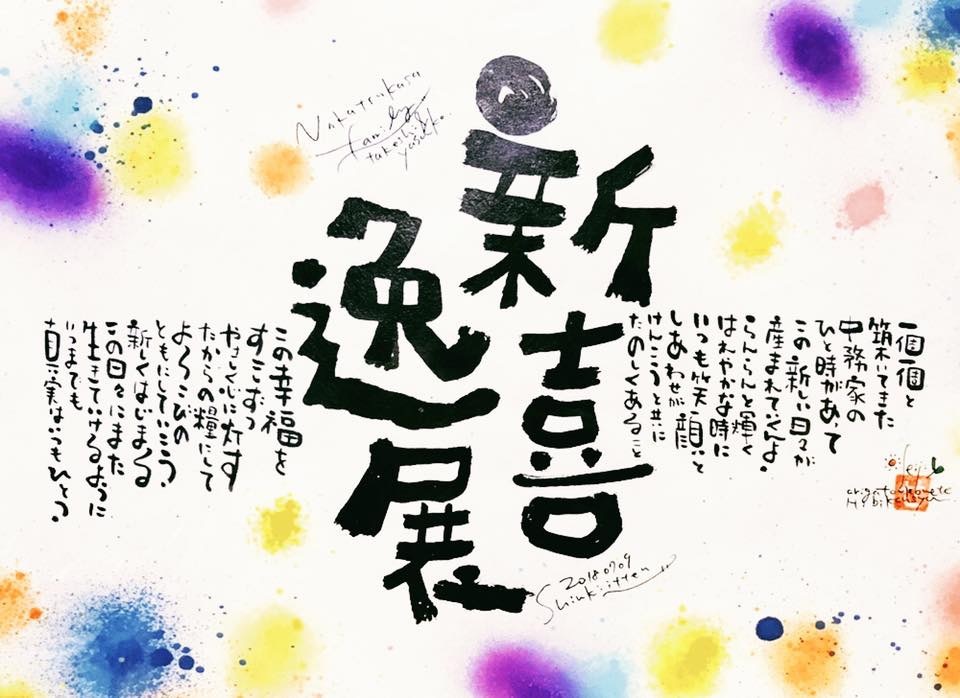 Nakatsukasa
family
takeshi &
yasuko.
新喜
逸展
一個一個と
築いてきた
中務家の
ひと時があって
この新しい日々が
産まれていくんよ。
らんらんと輝く
はれやかな時に
いつも笑顔と
しあわせが
けんこうと共に
たのしくあること
この幸福を
すこしずつ
やさしく心に灯す
たからの糧にして
よろこびの
ともにしていこう。
新しくはじまる
この日々にまた
生きていけるように
いつまでも
真実はいつもひとつ。
arigatoukomete
20180709
Shinkiitten